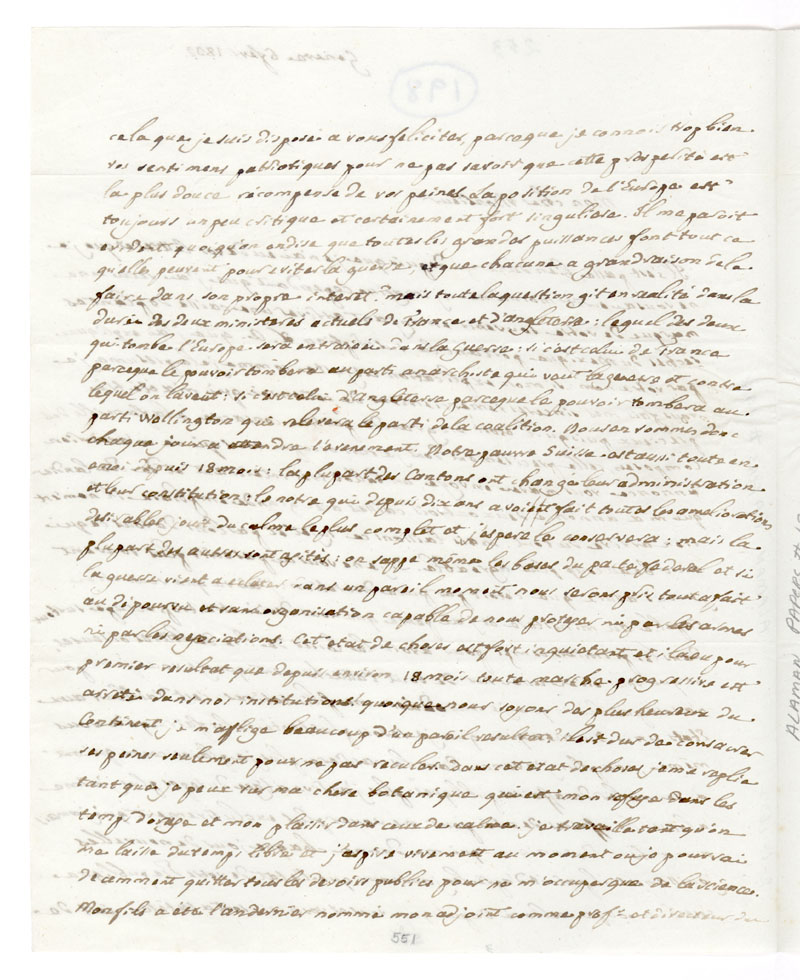 198
cela que je suis disposé a vous feliciter, parceque je connois trop bien
vos sentimens patriotiques pour ne pas savoir que cette prosperité est
la plus douce récompense de vos peines. La position de l'Europe est
toujours un peu critique et certainement fort singuliere. Il me paroit
evident quoiqu'on en dise que toutes les grandes puissances font tout ce
qu'elles peuvent pour eviter la guerre, et que chacune a grand raison de le
faire dans son propre interêt. mais toute la question git en realité dans la
durée des deux ministeres actuels de France et d'angleterre : lequel des deux
qui tombe l'Europe sera entrainée dans la Guerre : si c'est celui de France
parceque le pouvoir tombera au parti anarchiste qui veut la guerre et contre
lequel on la veut : si c'est celui d'Angleterre parceque le pouvoir tombera au
parti Wellington qui relevera le parti de la coalition. Nous en sommes donc
chaque jour a attendre l'evenement. Notre pauvre Suisse est aussi toute en
emoi depuis 18 mois : la plupart des Cantons ont changé leur administration
et leur constitution : le notre qui depuis dix ans avoit fait toutes les ameliorations
desirables jouit du calme le plus complet et j'espere le conservera ; mais la
plupart des autres sont agités : on sappe même les bases du pacte federal et si
la guerre vient a eclater dans un pareil moment nous serons pris tout a fait
au depourvu et sans organisation capable de nous proteger ni par les armes
ni par les negociations. Cet etat de choses est fort inquietant et il a eu pour
premier resultat que depuis environ 18 mois toute marche progressive est
arretée dans nos institutions. quoique nous soyons des plus heureux du
Continent je m'afflige beaucoup d'un pareil resultat. il est dur de consacrer
ses peines seulement pour ne pas reculer. dans cet etat de choses je me replie
tant que je peux vers ma chere botanique qui est mon refuge dans les
temps d'orage et mon plaisir dans ceux de calme. je travaille tant qu'on
me laisse du temps libre et j'aspire vivement au moment ou je pourrai
decemment quitter tous les devoirs publics pour ne m'occuper que de la science.
Mon fils a été l'an dernier nommé mon adjoint comme prof.r et directeur du
551
ALAMAN PAPERS